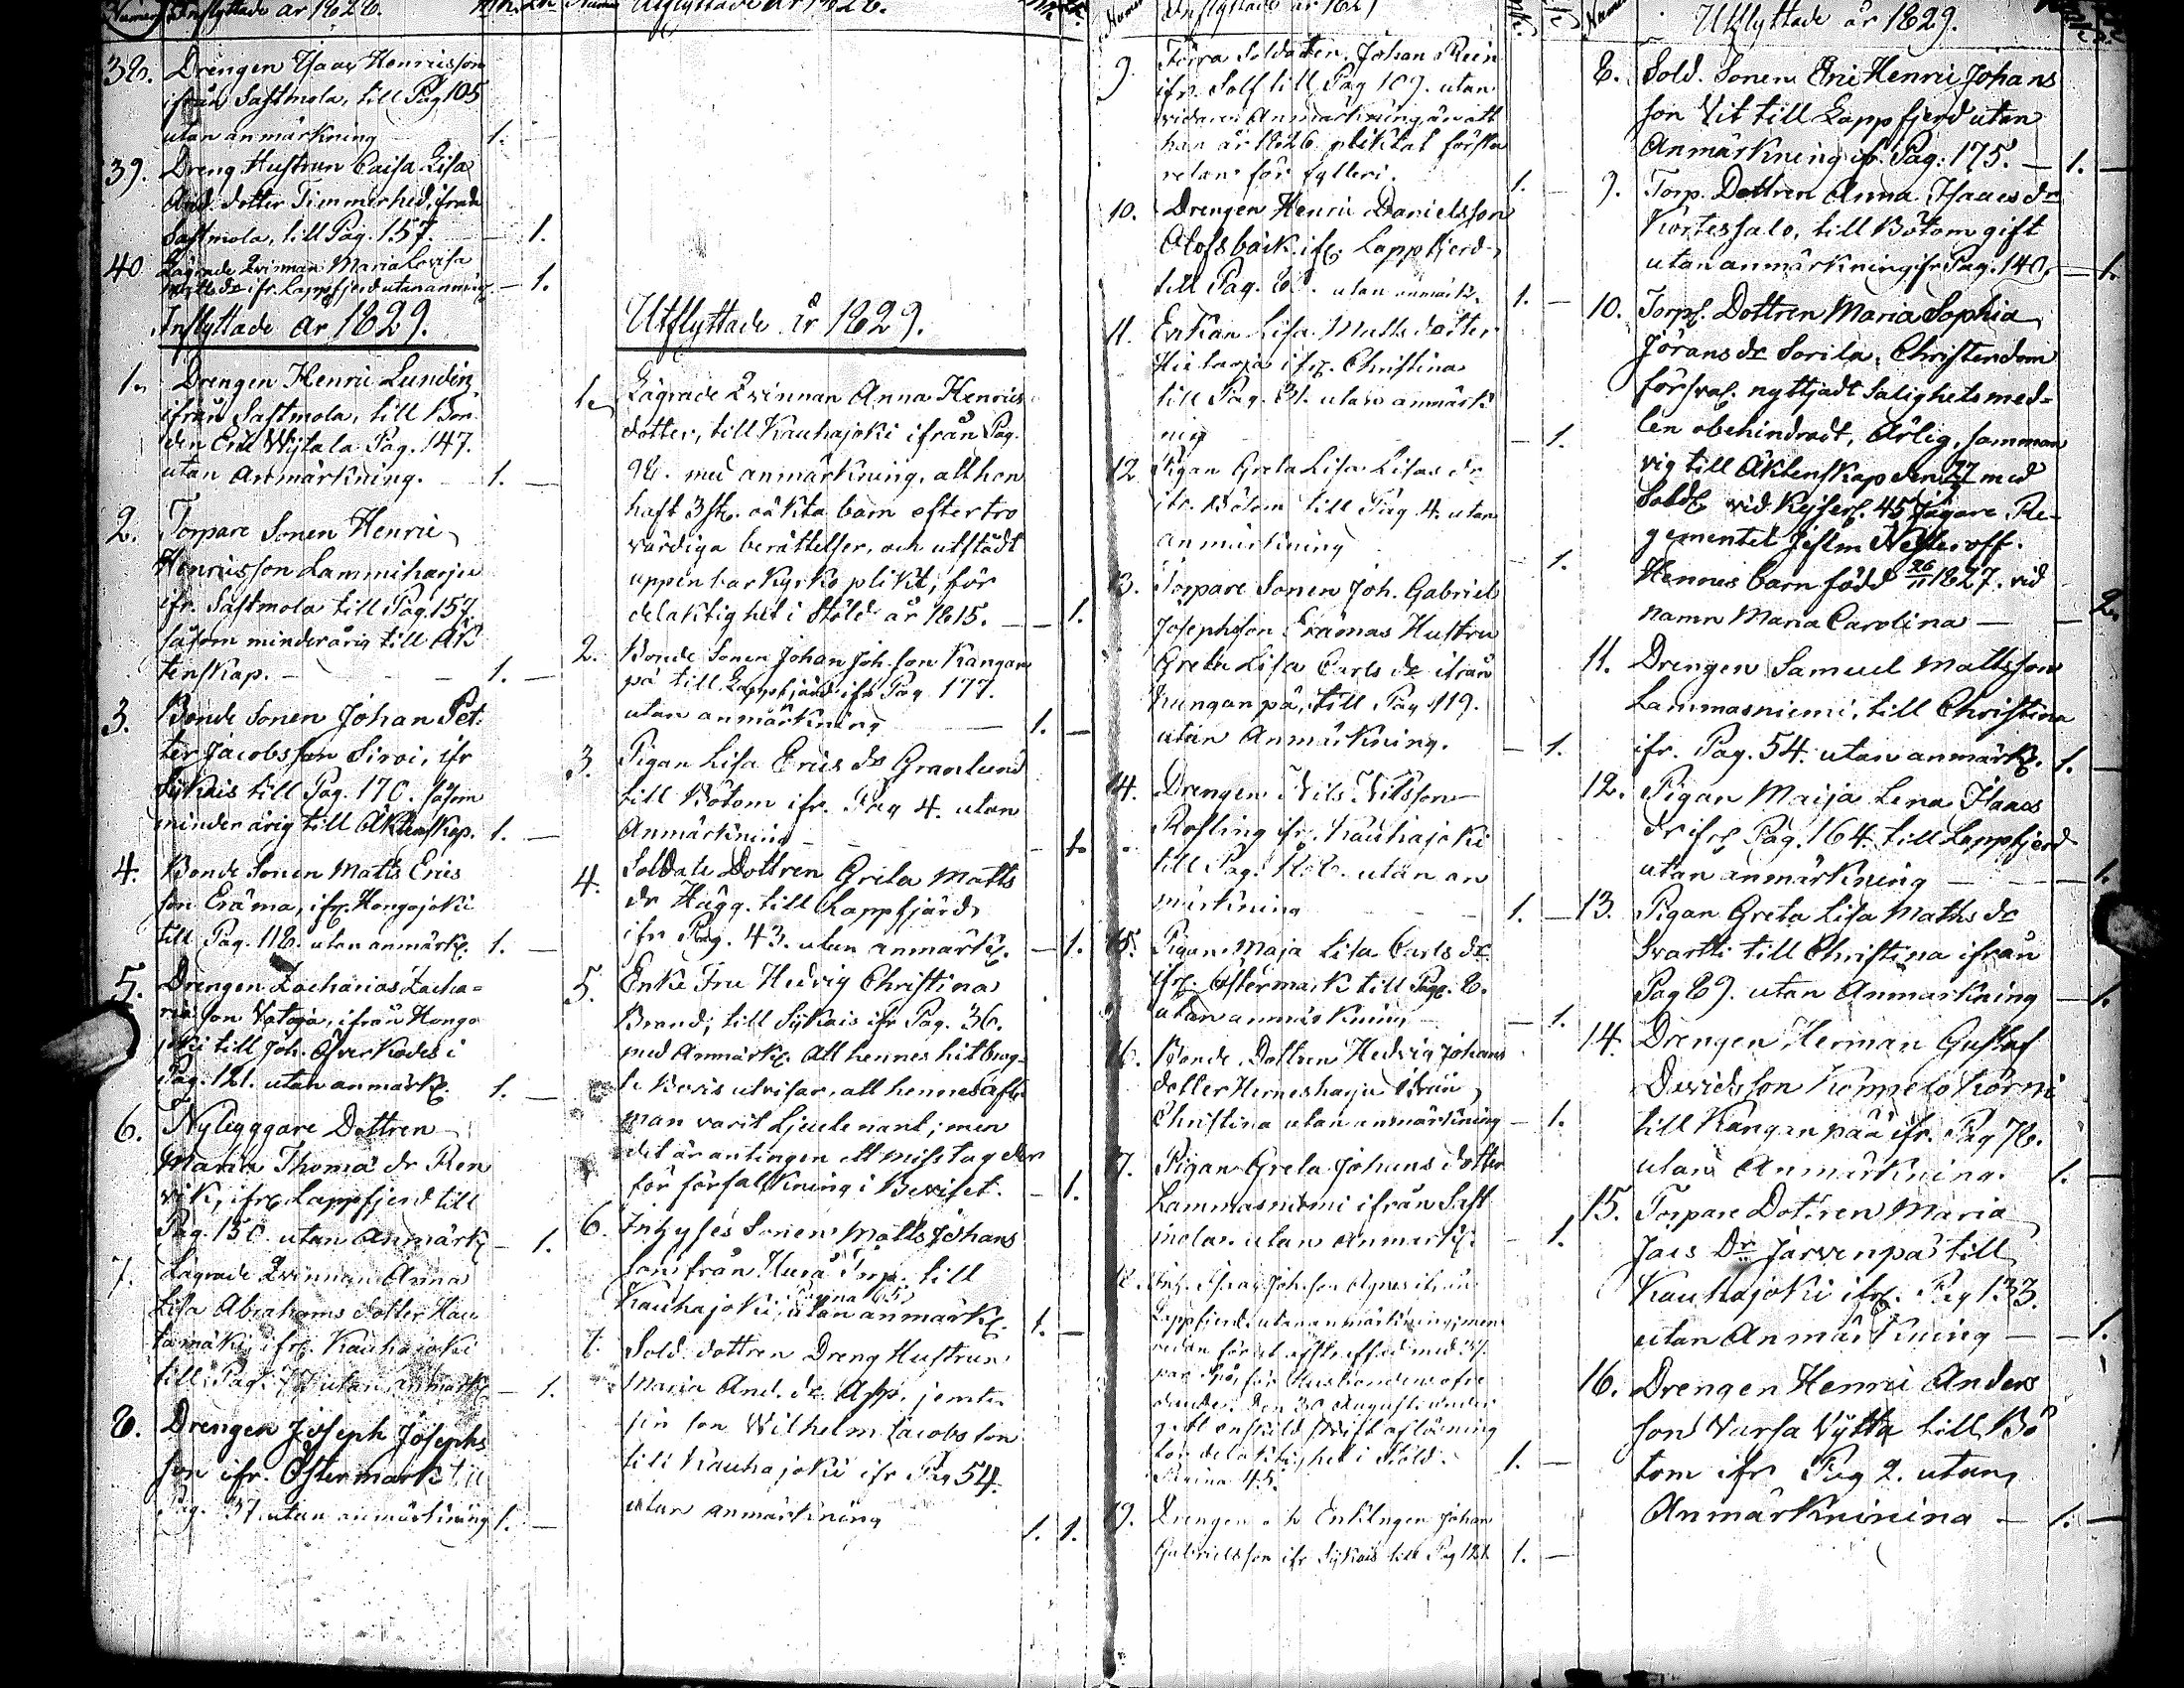 Inflyttade år 1828.
38. Drengen Isaac Henricsson
ifrån Sastmola, till Pag 105
utan anmärkning 1.
39. Dreng Hustrun Caisa Lisa
And. dotter Timmerhed, ifrån
Sastmola, till Pag. 157. 1.
40. Lägrade Qvinnan Maria Lovisa
Matts dr ifr. Lappfjerd utan anmärk 1.
Inflyttade år 1829.
1. Drengen Henric Lundin
ifrån Sastmola, till Bon
den Eric Wijtala Pag. 147.
utan Anmärkning. 1.
2. Torpare Sonen Henric
Henricsson Lammiharju
ifr. Sastmola till Pag. 157
såsom minderårig till Äk
tenskap. 1.
3. Bonde Sonen Johan Pet
ter Jacobsson Siroi, ifr
Sykais till Pag. 170. såsom
minderårig till Äktenskap. 1.
4. Bonde Sonen Matts Erics
son Eräma, ifr. Hongojoki
till Pag. 118. utan anmärk. 1.
5. Drengen Zacharias Zacha=
risson Vataja, ifrån Hongo
joki till Joh. i
Pag. 121. utan anmärk. 1.
6. Nybyggare Dottren
Maria Thoma dr Ren
vik, ifr. Lappfjerd till
Pag. 150. utan Anmärk 1.
7. Lägrade Qvinnan Anna
Lisa Abrahams dotter Hau
tamäki, ifr. Kauhajoki
till Pag. 77 utan anmärk 1.
8. Drengen Joseph Josephs
son ifr. Östermark till
Pag. 37. utan anmärkning 1.
Utflyttade år 1828.
Utflyttade år 1829.
1. Lägrade Qvinnan Anna Henrics
dotter, till Kauhajoki ifrån Pag.
98. med anmärkning, att hon
haft 3 st. oäkta barn efter tro
värdiga berättelser, och utstådt
uppenbar Kyrkoplikt, för
delaktighet i Stöld år 1815. 1.
2. Bonde Sonen Johan Joh. son Kangan
pä till Lappfjärd ifr Pag 177.
utan anmärkning 1.
3. Pigan Lisa Erics dr Granlund
till Bötom ifr. Pag 4. utan
Anmärkning 1.
4. Soldate Dottren Greta Matts
dr Hägg. till Lappfjärd
ifr Pag. 43. utan anmärk. 1.
5. Enke Fru Hedvig Christina
Brand, till Sykais ifr Pag. 36.
med Anmärk. Att hennes hitbrag=
te Bevis utvisar, att hennes Afl.
man varit Ljeutenant; men
det är antingen ett misstag eller
för förfalskning i Beviset. 1.
6. Inhyses Sonen Matts Johans
son från Huså Torp. till
Pagina 65
Kauhajoki, utan anmärk. 1.
7. Sold. dottren Dreng Hustrun
Maria And. dr Asp. jemte
sin son Wilhelm Jacobsson
till Kauhajoki ifr Pag 54.
utan anmärkning 1. 1.
Inflyttade år 1829
9. Förra Soldaten Johan Reen
ifr. Solf till Pag 109. utan
vidare Anmärkning än att
han år 1826 pliktat första
resan för fylleri. 1.
10. Drengen Henric Danielsson
Olofsbäck ifr. Lappfjerd
till Pag. 8. utan anmärk. 1.
11. Enkan Lisa Matts dotter
ifr. Christina
till Pag. 31. utan anmärk
nig 1.
12 Pigan Greta Lisa Lisas dr
ifr. Bötom till Pag 4. utan
anmärkning 1.
13. Torpare Sonen Joh. Gabriel
Josephsson Erämas Hustru
Greta Lisa Carls dr ifrån
Kunganpä, till Pag 119.
utan Anmärkning. 1.
14. Drengen Nils Nilsson
Rosling ifr. Kauhajoki
till Pag. utan an
märkning 1.
15. Pigan Maja Lisa Carls dr.
ifr. Östermark till Pag. 8.
utan anmärkning 1.
16. Bonde Dottren Hedvig Johans
dotter Herneharju ifrån
Christina utan anmärkning 1.
17. Pigan Greta Johans dotter
Lammasniemi ifrån Sast
mola. utan anmärk. 1.
18. Inh. Isaac Johsson Agnes ifrån
Lappfjerd utan anmärkning; men
sedan för et afstraffad med 37
par Spö, för Husbondens ofre
dande. Den 30 Augusti under
gått enskild Skrift aflösning
för delaktighet i Stöld.
Pagina 45. 1.
19. Drengen och Enklingen Johan
Gabrielsson ifr Sykais till Pag 121 1.
Utflyttade år 1829.
8. Sold. Sonen Eric Henric Johans
son Vit till Lappfjerd utan
Anmärkning ifr Pag. 175. 1.
9. Torp. Dottren Anna Isaacs dr
Kortessalo, till Bötom gift
utan anmärkning ifr Pag. 140, 1.
10. Torp. Dottren Maria Sophia
Jörans dr Sorila, Christendom
försval. nyttjadt Salighetsmed=
len obehindradt, Ärlig, samman
vig till Äktenskap den 27 med
Sold. vid Kejserl. 45 Jägare Re=
gementet Jeflm Nesteroff.
Hennes barn född 26/11 1827. vid
namn Maria Carolina 2.
11. Drengen Samuel Mattsson
Lammasniemi, till Christina
ifr. Pag. 54. utan anmärk. 1.
12. Pigan Maija Lena Isaacs
dr ifr. Pag. 164. till Lappfjerd
utan anmärkning 1.
13. Pigan Greta Lisa Matts dr
Svartti till Christina ifrån
Pag 89. utan Anmärkning 1.
14. Drengen Herman Gustaf
Davidsson Kömpelokörni
till Kanganpää ifr. Pag 76.
utan Anmärkning. 1.
15. Torpare Dottren Maria
Jacs Dr Jarvenpä till
Kauhajoki ifr. Pag 133.
utan Anmärkning 1.
16. Drengen Henric Anders
son Varsa Vytta till Bö
tom ifr Pag 2. utan
Anmärkninina 1.